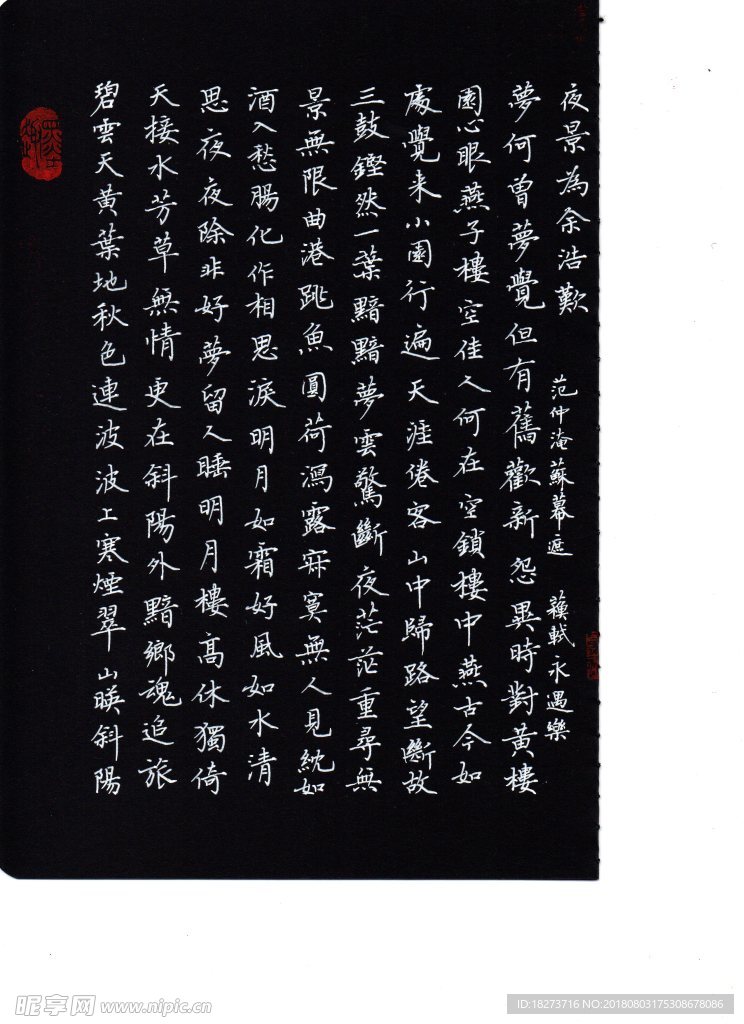 碧雲天黃葉地秋色連波波上寒煙翠山暎斜陽
天接水芳草無情更在斜陽外黯鄉魂追旅
思夜夜除非好夢留人睡明月樓高休獨倚
酒入愁腸化作相思淚明月如霜好風如水清
景無限曲港跳魚圓荷瀉露寂寞無人見紞如
三鼓鏗然一葉黯黯夢雲驚斷夜茫茫重尋無
處覺來小園行遍天涯倦客山中歸路望斷故
園心眼燕子樓空佳人何在空鎖樓中燕古今如
夢何曾夢覺但有舊歡新怨異時對黃樓
夜景為余浩歎
范仲淹蘇幕遮 蘇軾永遇樂
昵享网 www.nipic.cn
ID:18273716 NO:20180803175308678086